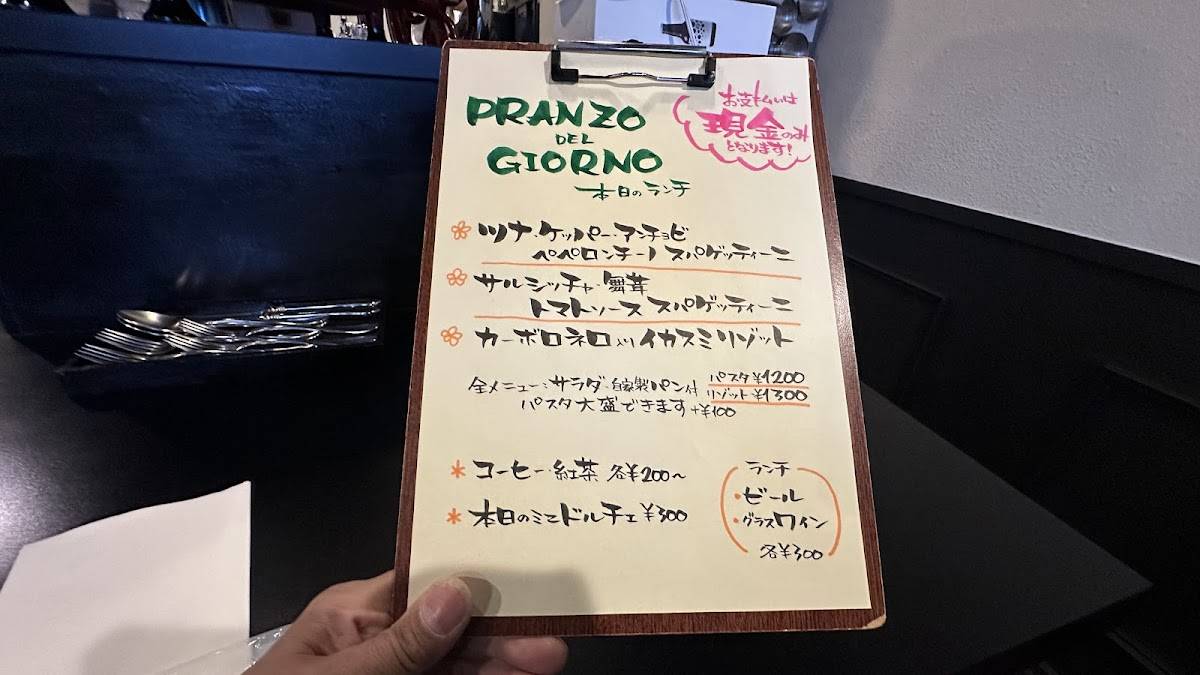 PRANZO
DEL
GIORNO
本日のランチ
お支払いは
現金のみ
となります!
ツナ・ケッパー・アンチョビ
ペペロンチーノ スパゲッティーニ
サルシッチャ・舞茸
トマトソース スパゲッティーニ
カーボロネロ入り イカスミリゾット
全メニュー:サラダ・自家製パン付
パスタ¥1200
リゾット¥1300
パスタ大盛できます+¥100
* コーヒー・紅茶 各¥200~
* 本日のミニドルチェ ¥300
ランチ
・ビール
・グラスワイン
各¥300